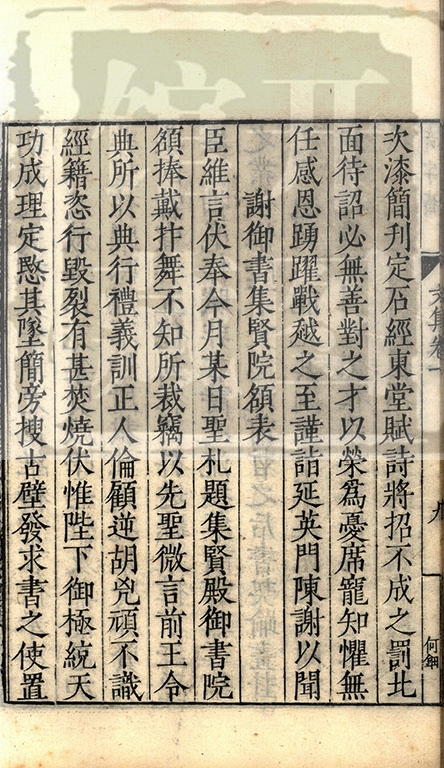 次漆簡刊定石經東堂賦詩將招不成之罰北
面待詔必無善對之才以榮爲憂席寵知懼無
任感恩踴躍戰越之至謹詣延英門陳謝以聞
謝御書集賢院額表
臣維言伏奉今月某日聖札題集賢殿御書院
額捧戴抃舞不知所裁竊以先聖微言前王令
典所以典行禮義訓正人倫顧逆胡兇頑不識
經籍恣行毀裂有甚焚燒伏惟陛下御極統天
功成理定愍其墜簡旁搜古壁發求書之使置
文集卷一
九